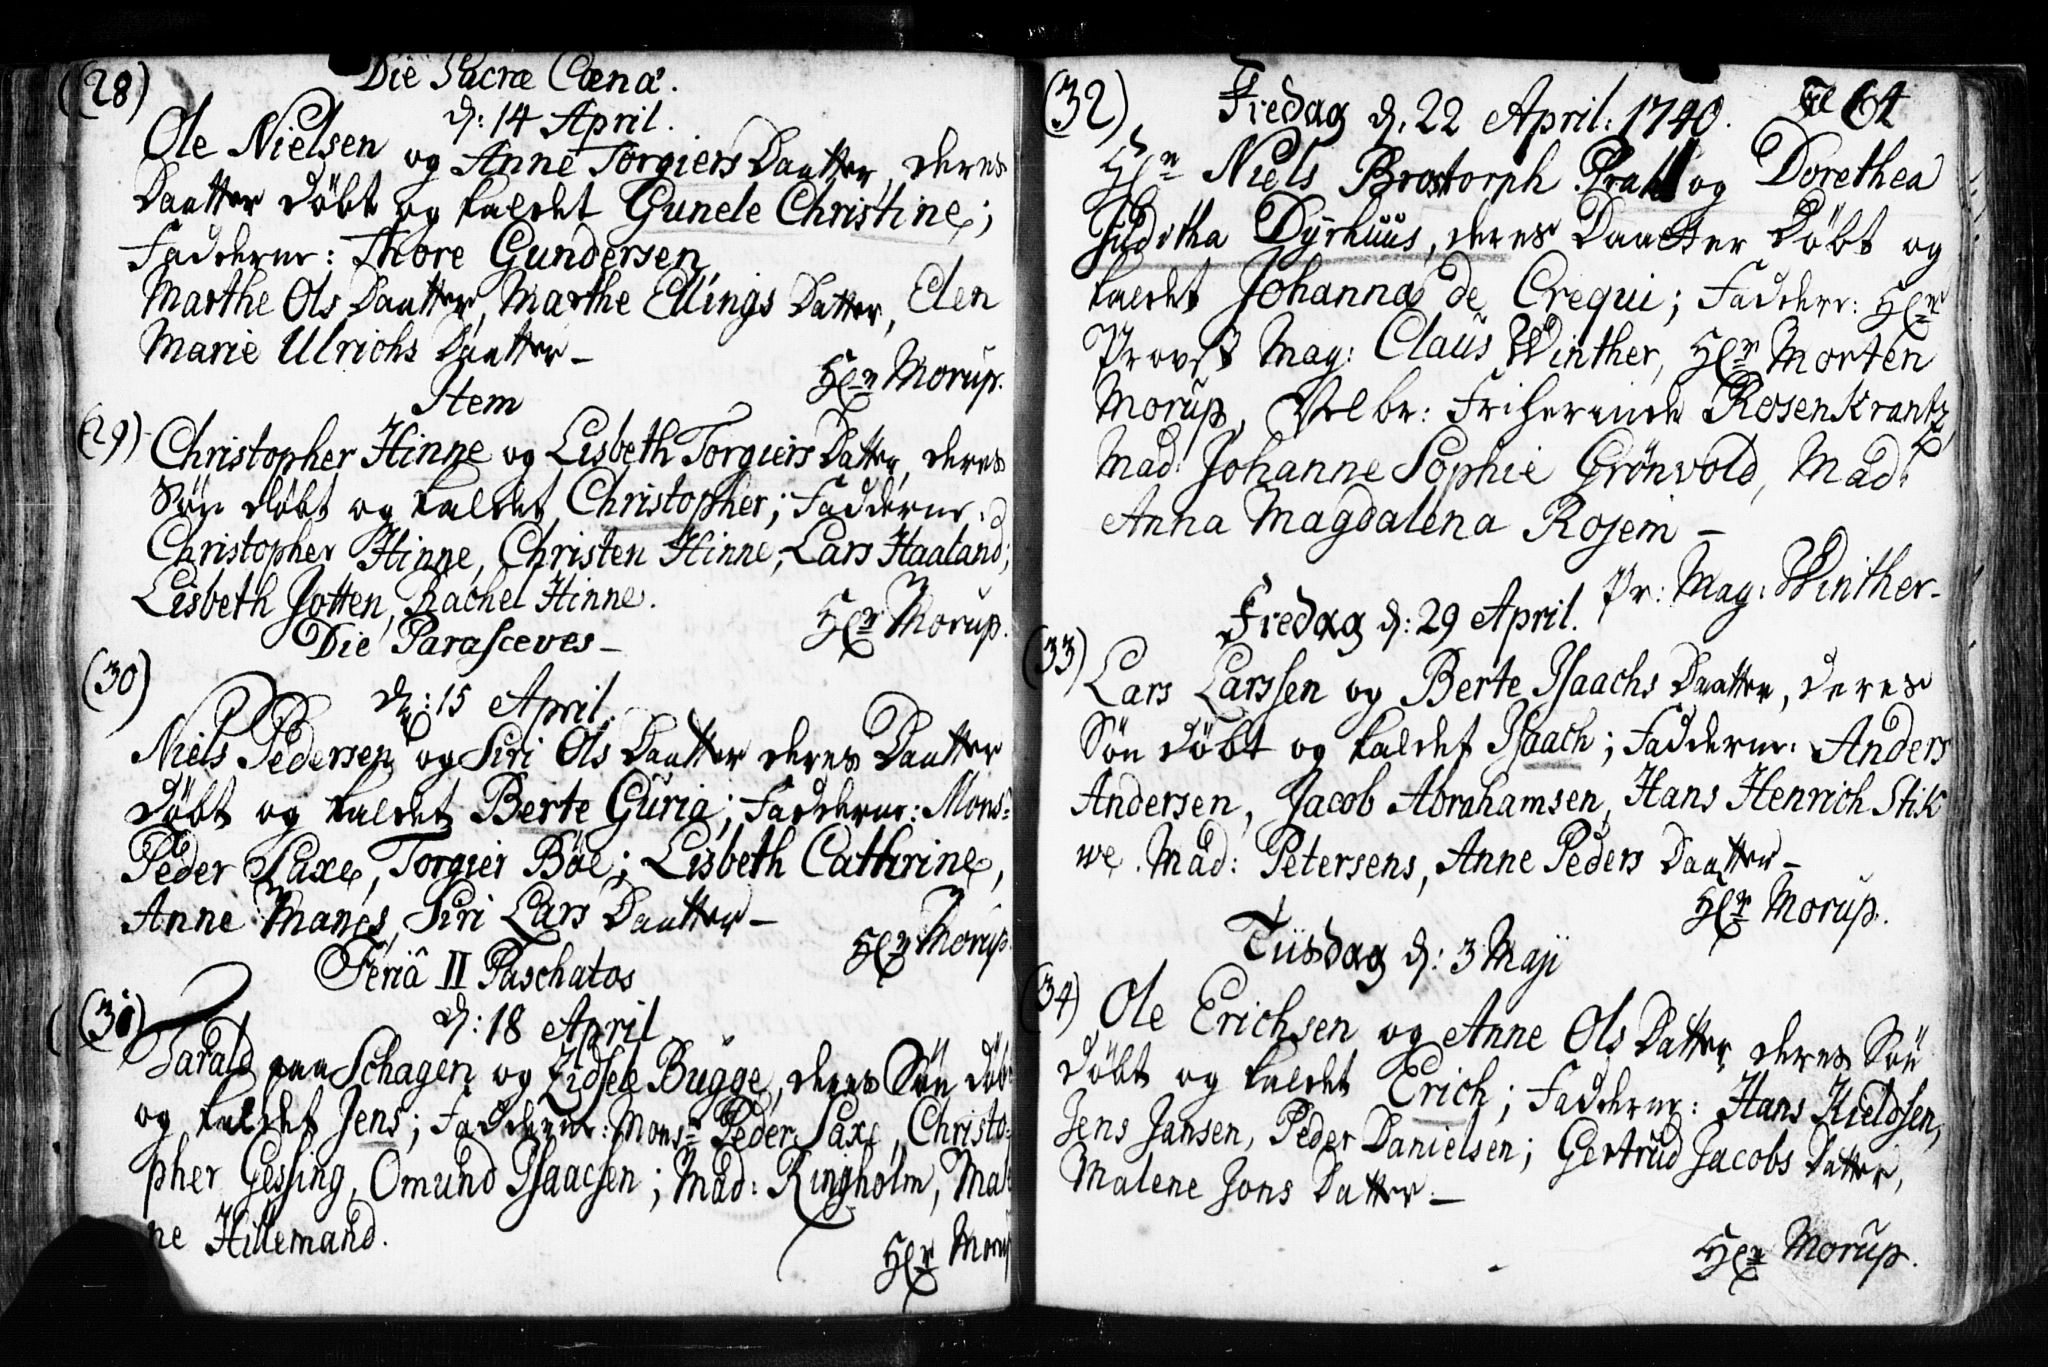 (28)
Die Sacræ Cœnæ.
d: 14 April.
Ole Nielsen og Anne Torgiers Daatter, deres
Daatter døbt og kaldet Gunele Christine;
Fadderne: Thore Gundersen,
Marthe Ols Daatter, Marthe Ellings Datter, Elen
Marie Ulrichs Daatter –
Hr Morup.
Item
(29) Christopher Hinne og Lisbeth Torgiers Datter, deres
Søn døbt og kaldet Christopher; Fadderne:
Christopher Hinne, Christen Hinne, Lars Haaland;
Lisbeth Jotten, Rachel Hinne.
Hr Morup.
Die Parasceves –
(30)
d: 15 April.
Niels Pedersen og Siri Ols Daatter deres Daatter
døbt og kaldet Berte Guria; Fadderne: Monsr
Peder Saxe, Torgier Böe; Lisbeth Cathrine,
Anne Manes, Siri Lars Daatter –
Hr Morup.
Feriâ II Paschatos
d: 18 April
(31)
Tarald paa Schagen og Zidsele Bugge, deres Søn døbt
og kaldet Jens; Fadderne: Monsr Peder Saxe, Christo-
pher Gessing, Omund Isaacsen; Mad: Ringholm, Male
ne Hillemand.
Hr Morup
(32) Fredag d. 22 April: 1740. 64
Hr Niels Brostorph Pratt og Dorethea
Juditha Dÿrhuus, deres Daatter døbt og
kaldet Johanna de Crequi; Fadder: Hr
Provst Mag: Claus Winther, Hr Morten
Morup, Velbr: Friherinde Rosenkrantz,
Mad: Johanne Sophie Grönvold, Mad:
Anna Magdalena Rosem –
Pr: Mag: Winther –
Fredag d: 29 April.
(33) Lars Larssen og Berte Isaachs Daatter, deres
Søn døbt og kaldet Isaach; Fadderne: Anders
Andersen, Jacob Abrahamsen, Hans Henrich Stik
we. Mad: Petersens, Anne Peders Daatter –
Hr Morup.
Tiisdag d: 3 Maji
(34) Ole Erichsen og Anne Ols Datter deres Søn
døbt og kaldet Erich; Fadderne: Hans Kieldsen,
Jens Jansen, Peder Danielsen; Gertrud Jacobs Datter,
Malene Jons Datter. –
Hr Morup.